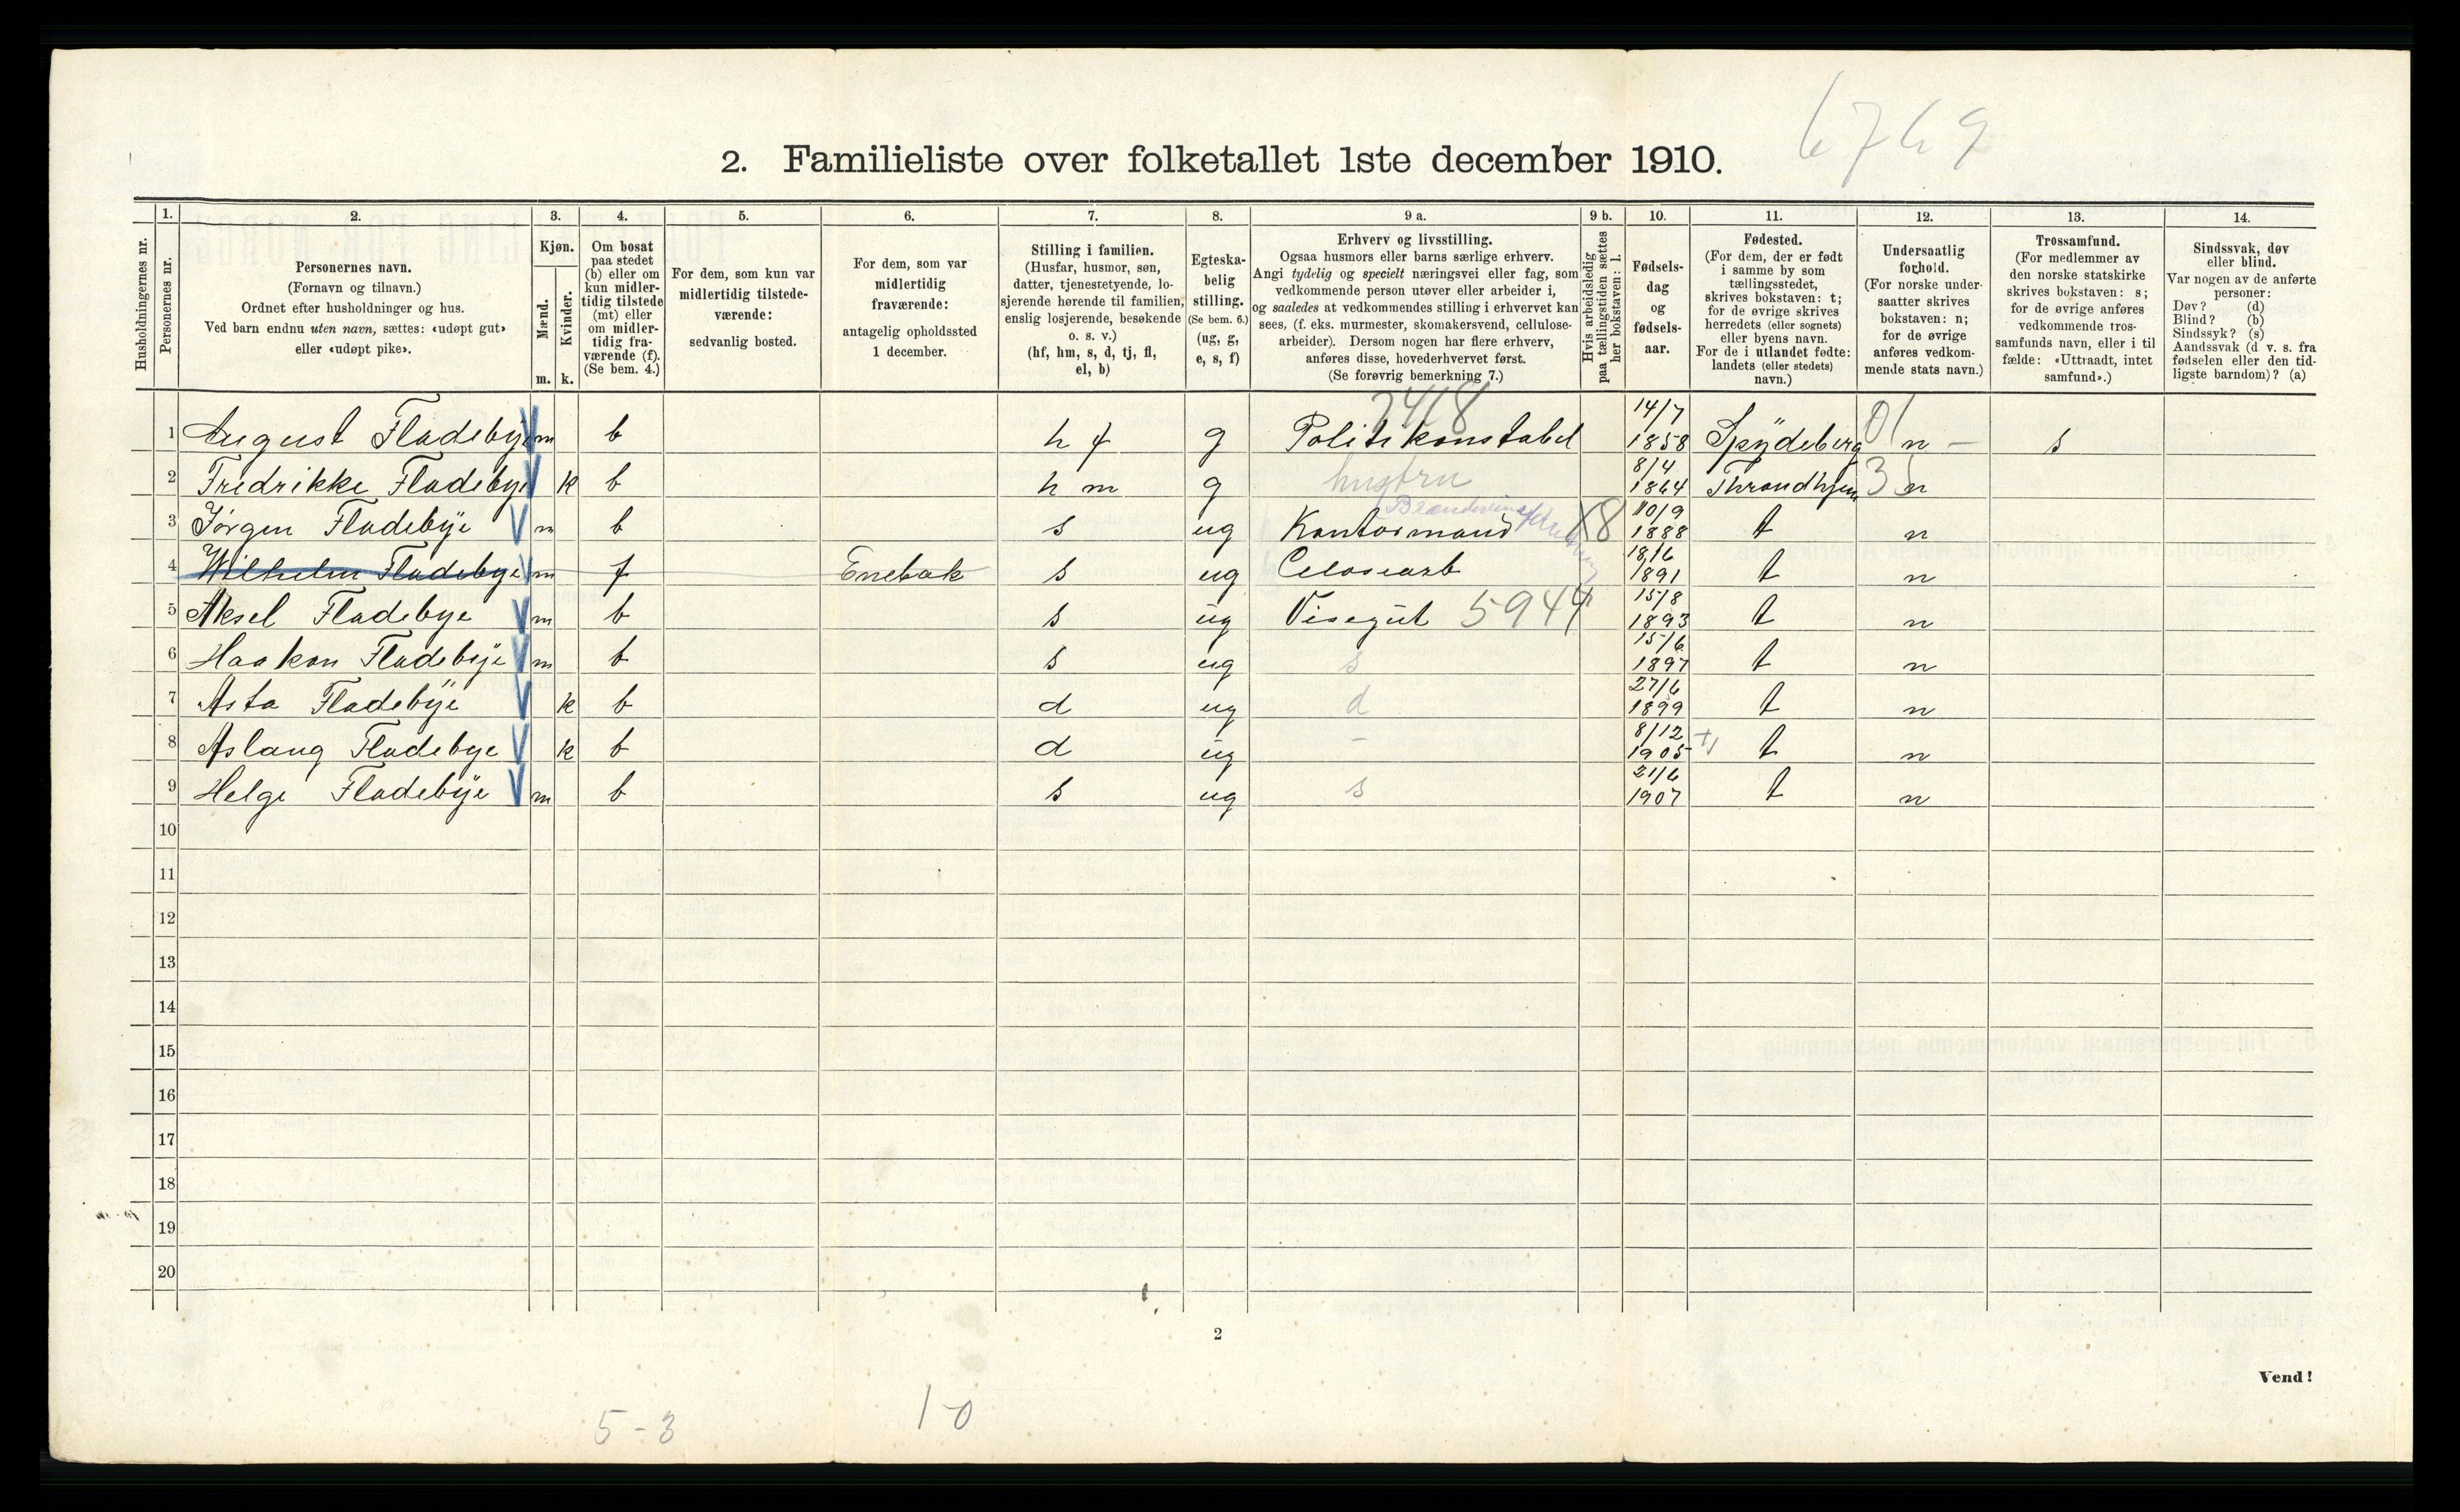 6769
2. Familieliste over folketallet 1ste december 1910.
Husholdningernes nr.
1. Personernes nr.
2. Personernes navn.
(Fornavn og tilnavn.)
Ordnet efter husholdninger og hus.
Ved barn endnu uten navn, sættes: «udøpt gut»
eller «udøpt pike».
3. Kjøn.
Mænd. m.
Kvinder. k.
4. Om bosat
paa stedet
(b) eller om
kun midler-
tidig tilstede
(mt) eller
om midler-
tidig fra-
værende (f).
(Se bem. 4.)
5. For dem, som kun var
midlertidig tilstede-
værende:
sedvanlig bosted.
6. For dem, som var
midlertidig
fraværende:
antagelig opholdssted
1 december.
7. Stilling i familien.
(Husfar, husmor, søn,
datter, tjenestetyende, lo-
sjerende hørende til familien,
enslig losjerende, besøkende
o. s. v.)
(hf, hm, s, d, tj, fl,
el, b)
8. Egteska-
belig
stilling.
(Se bem. 6.)
(ug, g,
e, s, f)
9 a. Erhverv og livsstilling.
Ogsaa husmors eller barns særlige erhverv.
Angi tydelig og specielt næringsvei eller fag, som
vedkommende person utøver eller arbeider i,
og saaledes at vedkommendes stilling i erhvervet kan
sees, (f. eks. murmester, skomakersvend, cellulose-
arbeider). Dersom nogen har flere erhverv,
anføres disse, hovederhvervet først.
(Se forøvrig bemerkning 7.)
9 b. Hvis arbeidsledig
paa tællingstiden sættes
her bokstaven: l.
10. Fødsels-
dag
og
fødsels-
aar.
11. Fødested.
(For dem, der er født
i samme by som
tællingsstedet,
skrives bokstaven: t;
for de øvrige skrives
herredets (eller sognets)
eller byens navn.
For de i utlandet fødte:
landets (eller stedets)
navn.)
12. Undersaatlig
forhold.
(For norske under-
saatter skrives
bokstaven: n;
for de øvrige
anføres vedkom-
mende stats navn.)
13. Trossamfund.
(For medlemmer av
den norske statskirke
skrives bokstaven: s;
for de øvrige anføres
vedkommende tros-
samfunds navn, eller i til
fælde: «Uttraadt, intet
samfund».)
14. Sindssvak, døv
eller blind.
Var nogen av de anførte
personer:
Døv? (d)
Blind? (b)
Sindssyk? (s)
Aandssvak (d v. s. fra
fødselen eller den tid-
ligste barndom)? (a)
1 August Fladebye m b hf g Politikonstabel 14/7 1858 Spydeberg n – s
2 Fredrikke Fladebye k b hm g hustru 8/4 1864 Throndhjem n
3 Jørgen Fladebye m b s ug Kontormand 10/9 1888 t n
4 Wilhelm Fladebye m f Enebak s ug Celosearb 18/6 1891 t n
5 Aksel Fladebye m b s ug Visegut 5944 15/8 1893 t n
6 Haakon Fladebye m b s ug s 15/6 1897 t n
7 Asta Fladebye k b d ug d 27/6 1899 t n
8 Aslaug Fladebye k b d ug – 8/12 1905 t n
9 Helge Fladebye m b s ug s 21/6 1907 t n
10
11
12
13
14
15
16
17
18
19
20
2
Vend!
5-3
1-0